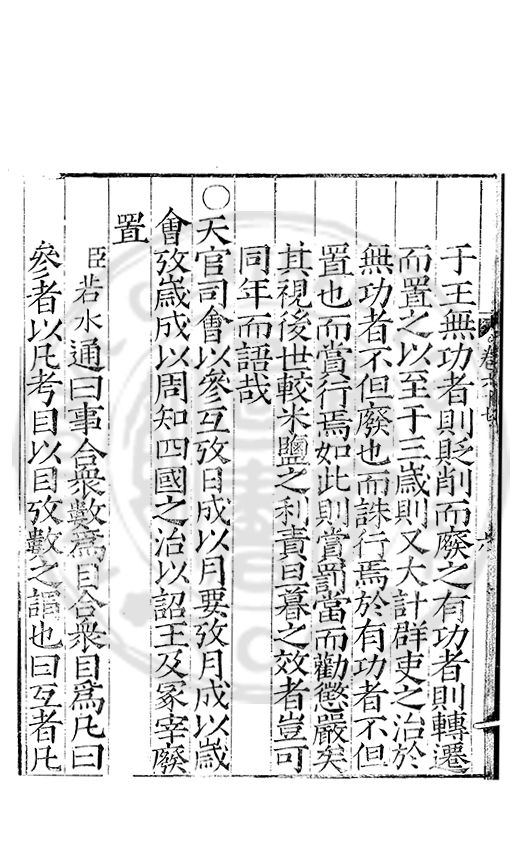 于王無功者則貶削而廢之有功者則轉遷
而置之以至于三歲則又大計群吏之治於
無功者不但廢也而誅行焉於有功者不但
置也而賞行焉如此則賞罰當而勸懲嚴矣
其視後世較米鹽之利責旦暮之效者豈可
同年而語哉
○天官司會以參互攷日成以月要攷月成以歲
會攷歲成以周知四國之治以詔王及冢宰廢
置
臣若水通曰事合衆數為目合衆目為凡曰
參者以凡考目以目攷數之謂也曰互者凡